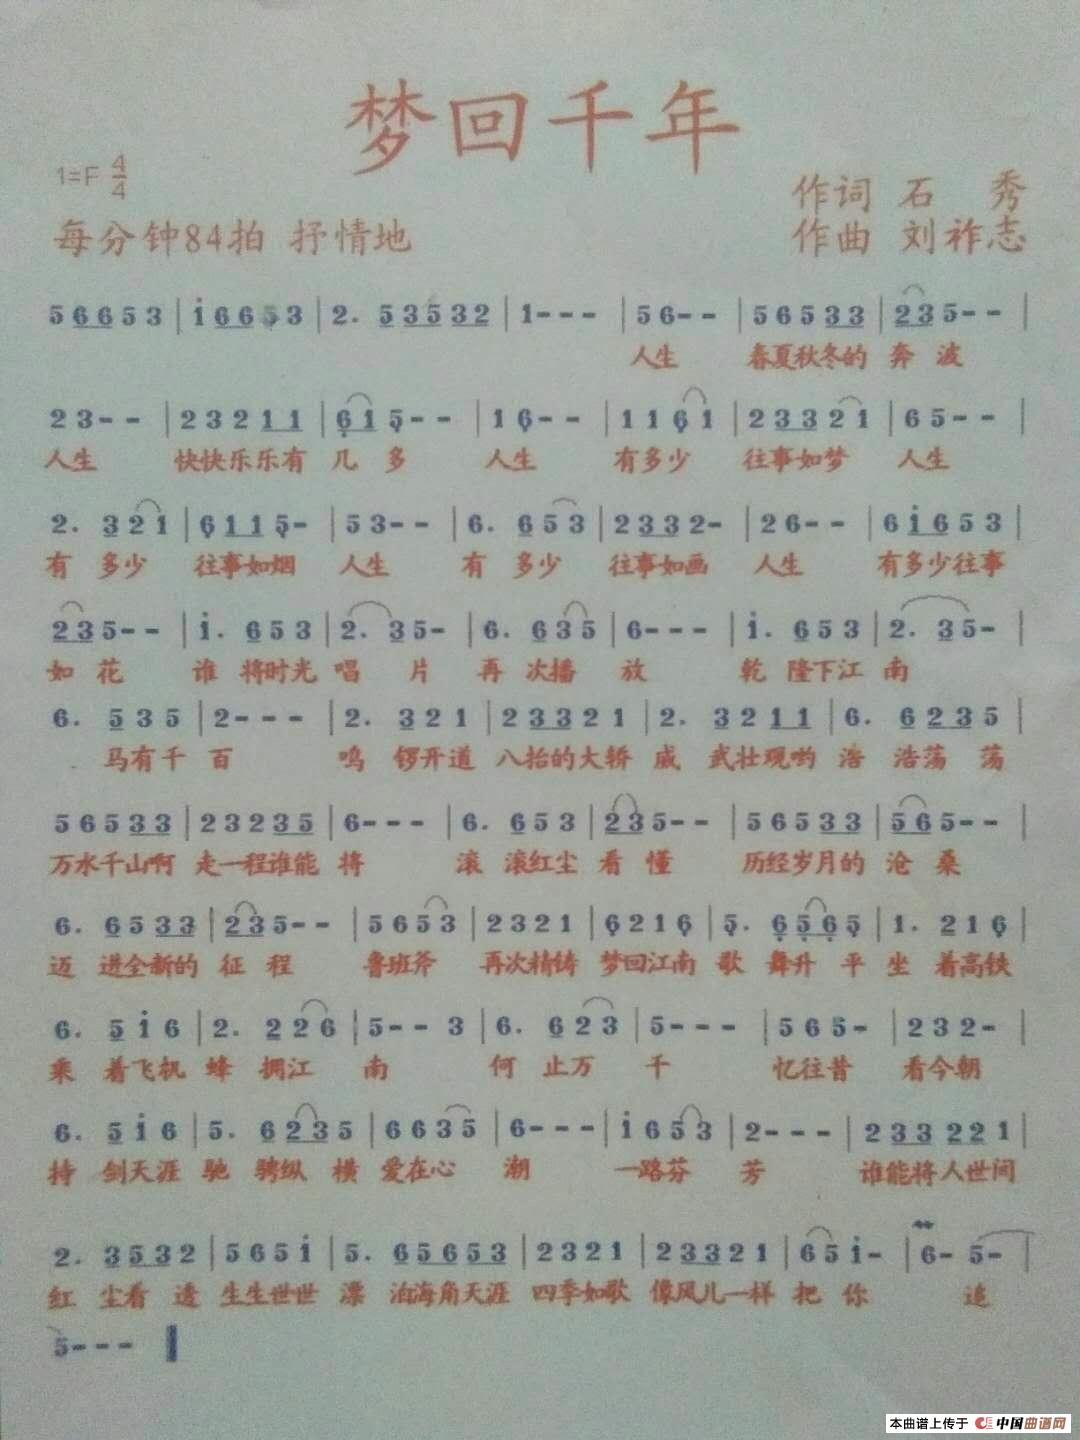 梦回千年
1=F 4/4
作词 石 秀
每分钟84拍 抒情地
作曲 刘祚志
5 6 6 5 3 | i 6 6 5 3 | 2. 5 3 5 3 2 | 1 - - - | 5 6 - - | 5 6 5 3 3 | 2 3 5 - - |
人生 春夏秋冬的 奔 波
2 3 - - | 2 3 2 1 1 | 6 1 5 - - | 1 6 - - | 1 1 6 1 | 2 3 3 2 1 | 6 5 - - |
人生 快快乐乐有 几 多 人生 有多少 往事如梦 人生
2. 3 2 1 | 6 1 1 5 - | 5 3 - - | 6. 6 5 3 | 2 3 3 2 - | 2 6 - - | 6 i 6 5 3 |
有 多少 往事如烟 人生 有 多少 往事如画 人生 有多少往事
2 3 5 - - | i. 6 5 3 | 2. 3 5 - | 6. 6 3 5 | 6 - - - | i. 6 5 3 | 2. 3 5 - |
如 花 谁 将时光 唱 片 再 次播 放 乾 隆下江 南
6. 5 3 5 | 2 - - - | 2. 3 2 1 | 2 3 3 2 1 | 2. 3 2 1 1 | 6. 6 2 3 5 |
马有千 百 鸣 锣开道 八抬的大轿 威 武壮观哟 浩 浩荡 荡
5 6 5 3 3 | 2 3 2 3 5 | 6 - - - | 6. 6 5 3 | 2 3 5 - - | 5 6 5 3 3 | 5 6 5 - - |
万水千山啊 走一程谁能 将 滚 滚红尘 看 懂 历经岁月的 沧 桑
6. 6 5 3 3 | 2 3 5 - - | 5 6 5 3 | 2 3 2 1 | 6 2 1 6 | 5. 6 5 6 5 | 1. 2 1 6 |
迈 进全新的 征 程 鲁班斧 再次精铸 梦回江南 歌 舞升 平 坐 着高铁
6. 5 i 6 | 2. 2 2 6 | 5 - - 3 | 6. 6 2 3 | 5 - - - | 5 6 5 - | 2 3 2 - |
乘 着飞机 蜂 拥江 南 何 止万 千 忆往昔 看今朝
6. 5 i 6 | 5. 6 2 3 5 | 6 6 3 5 | 6 - - - | i 6 5 3 | 2 - - - | 2 3 3 2 2 1 |
持 剑天涯 驰 骋纵 横 爱在心 潮 一路芬 芳 谁能将人世间
2. 3 5 3 2 | 5 6 5 i | 5. 6 5 6 5 3 | 2 3 2 1 | 2 3 3 2 1 | 6 5 i - | 6 - 5 - |
红 尘看 透 生生世世 漂 泊海角天涯 四季如歌 像风儿一样 把 你 追
5 - - -
本曲谱上传于 中国曲谱网